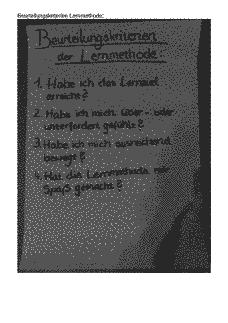 Beurteilungskriterien Lernmethode:
Beurteilungskriterien
der Lernmethode
1. Habe ich das Lernziel
erreicht?
2. Habe ich mich über- oder
unterfordert gefühlt?
3. Habe ich mich ausreichend
bewegt?
4. Hat die Lernmethode mir
Spaß gemacht?